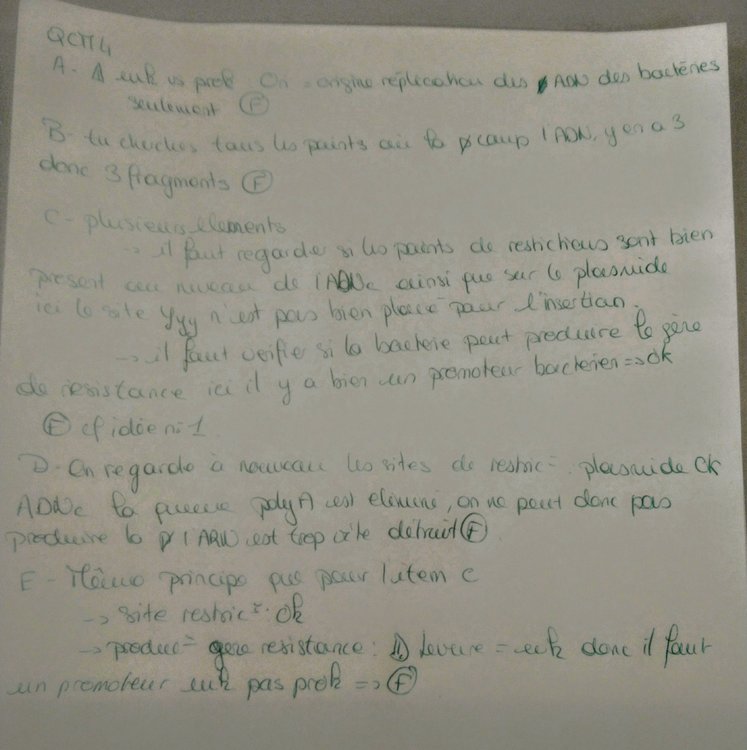 QCM 4
A - ⚠ euk vs prok Ori = origine réplication des ADN des bactéries
seulement (F)
B - tu cherches tous les points où la p coup l'ADN, y en a 3
donc 3 fragments (F)
C - plusieurs elements
-> il faut regarder si les points de restictions sont bien
present au niveau de l'ADNc ainsi que sur le plasmide
ici le site Yyy n'est pas bien placé pour l'insertion.
-> il faut verifier si la bacterie peut produire le gène
de resistance ici il y a bien un promoteur bacterien => ok
(F) cf idée n°1
D - On regarde à nouveau les sites de restric° plasmide ok
ADNc la queue polyA est eliminé, on ne peut donc pas
produire la p l'ARN est trop vite détruit (F)
E - Même principe que pour l'item C
-> site restric° : ok
-> produc° gène resistance : ⚠ Levure = euk donc il faut
un promoteur euk pas prok => (F)